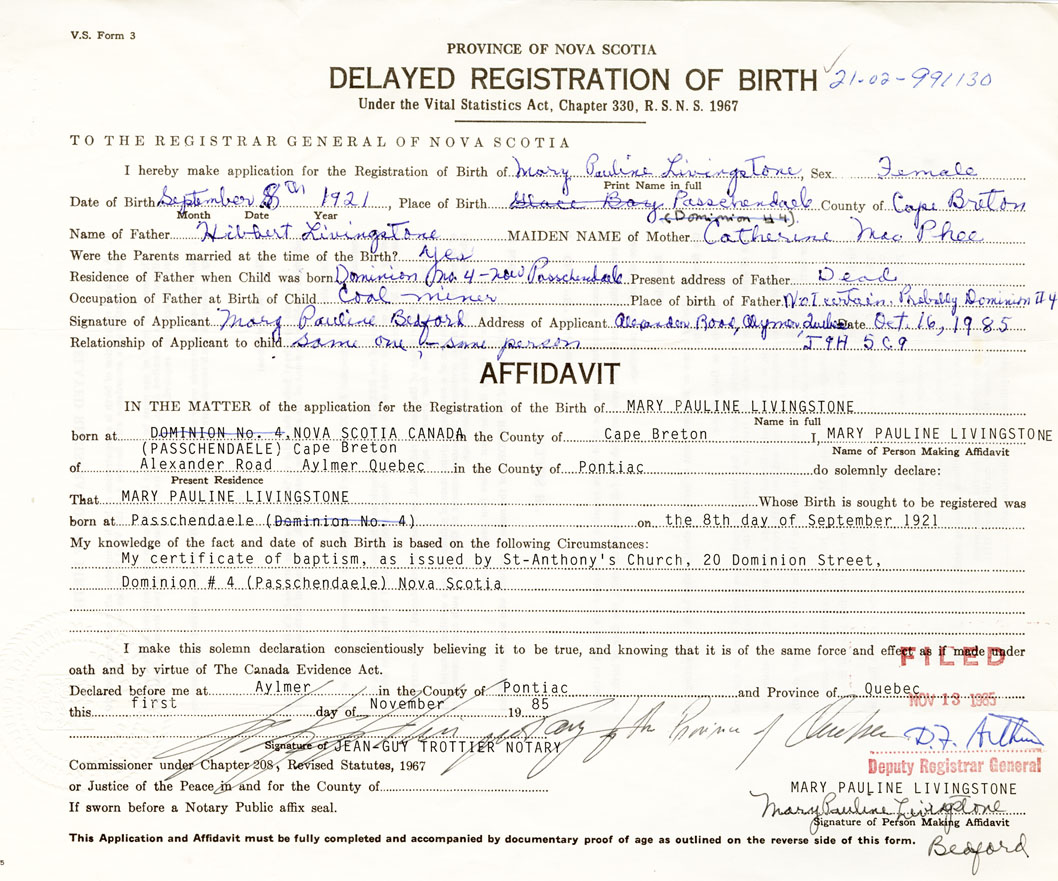 V.S. Form 3
PROVINCE OF NOVA SCOTIA
DELAYED REGISTRATION OF BIRTH 21-02-991130
Under the Vital Statistics Act, Chapter 330, R. S. N. S. 1967
TO THE REGISTRAR GENERAL OF NOVA SCOTIA
I hereby make application for the Registration of Birth of Mary Pauline Livingstone, Sex Female
Print Name in full
Date of Birth September 8th 1921, Place of Birth Glace Bay Passchendaele County of Cape Breton
Month Date Year (Dominion #4)
Name of Father Hibbert Livingstone MAIDEN NAME of Mother Catherine Mac Phee
Were the Parents married at the time of the Birth? Yes
Residence of Father when Child was born Dominion No. 4 - now Passchendale Present address of Father Dead
Occupation of Father at Birth of Child Coal miner Place of birth of Father Not certain. Probably Dominion #4
Signature of Applicant Mary Pauline Bedford Address of Applicant Alexander Road, Aylmer, Quebec Date Oct. 16, 1985
Relationship of Applicant to child same one & same person J9H 5C9
AFFIDAVIT
IN THE MATTER of the application for the Registration of the Birth of MARY PAULINE LIVINGSTONE
Name in full
born at DOMINION No. 4, NOVA SCOTIA CANADA in the County of Cape Breton I, MARY PAULINE LIVINGSTONE
(PASSCHENDAELE) Cape Breton Name of Person Making Affidavit
of Alexander Road Aylmer Quebec in the County of Pontiac do solemnly declare:
Present Residence
That MARY PAULINE LIVINGSTONE Whose Birth is sought to be registered was
born at Passchendaele (Dominion No. 4) on the 8th day of September 1921
My knowledge of the fact and date of such Birth is based on the following Circumstances:
My certificate of baptism, as issued by St-Anthony's Church, 20 Dominion Street,
Dominion # 4 (Passchendaele) Nova Scotia
I make this solemn declaration conscientiously believing it to be true, and knowing that it is of the same force and effect as if made under
FILED
oath and by virtue of The Canada Evidence Act.
Declared before me at Aylmer in the County of Pontiac and Province of Quebec
NOV 13 1985
this first day of November 19 85
Notary for the Province of Quebec D.F. Arthur
Signature of JEAN-GUY TROTTIER NOTARY
Commissioner under Chapter 208, Revised Statutes, 1967 Deputy Registrar General
or Justice of the Peace in and for the County of MARY PAULINE LIVINGSTONE
If sworn before a Notary Public affix seal. Mary Pauline Livingstone
Signature of Person Making Affidavit
This Application and Affidavit must be fully completed and accompanied by documentary proof of age as outlined on the reverse side of this form. Bedford